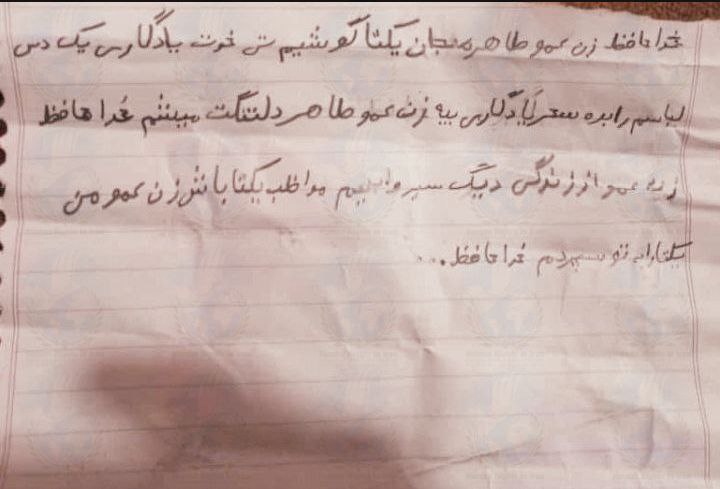 خدا حافظ زن عمو طاهره جان یکتا گوشیم تی خوت یادگاری یک دس
لباسم رابده سحر یادگاری بیه زن عمو طاهر دلتنگت میشم خدا حافظ
زن عمو از زندگی دیگ سیر واب‌یم مواظب یکتا باش زن عمو من
یکتارا به تو سپردم خدا حافظ...